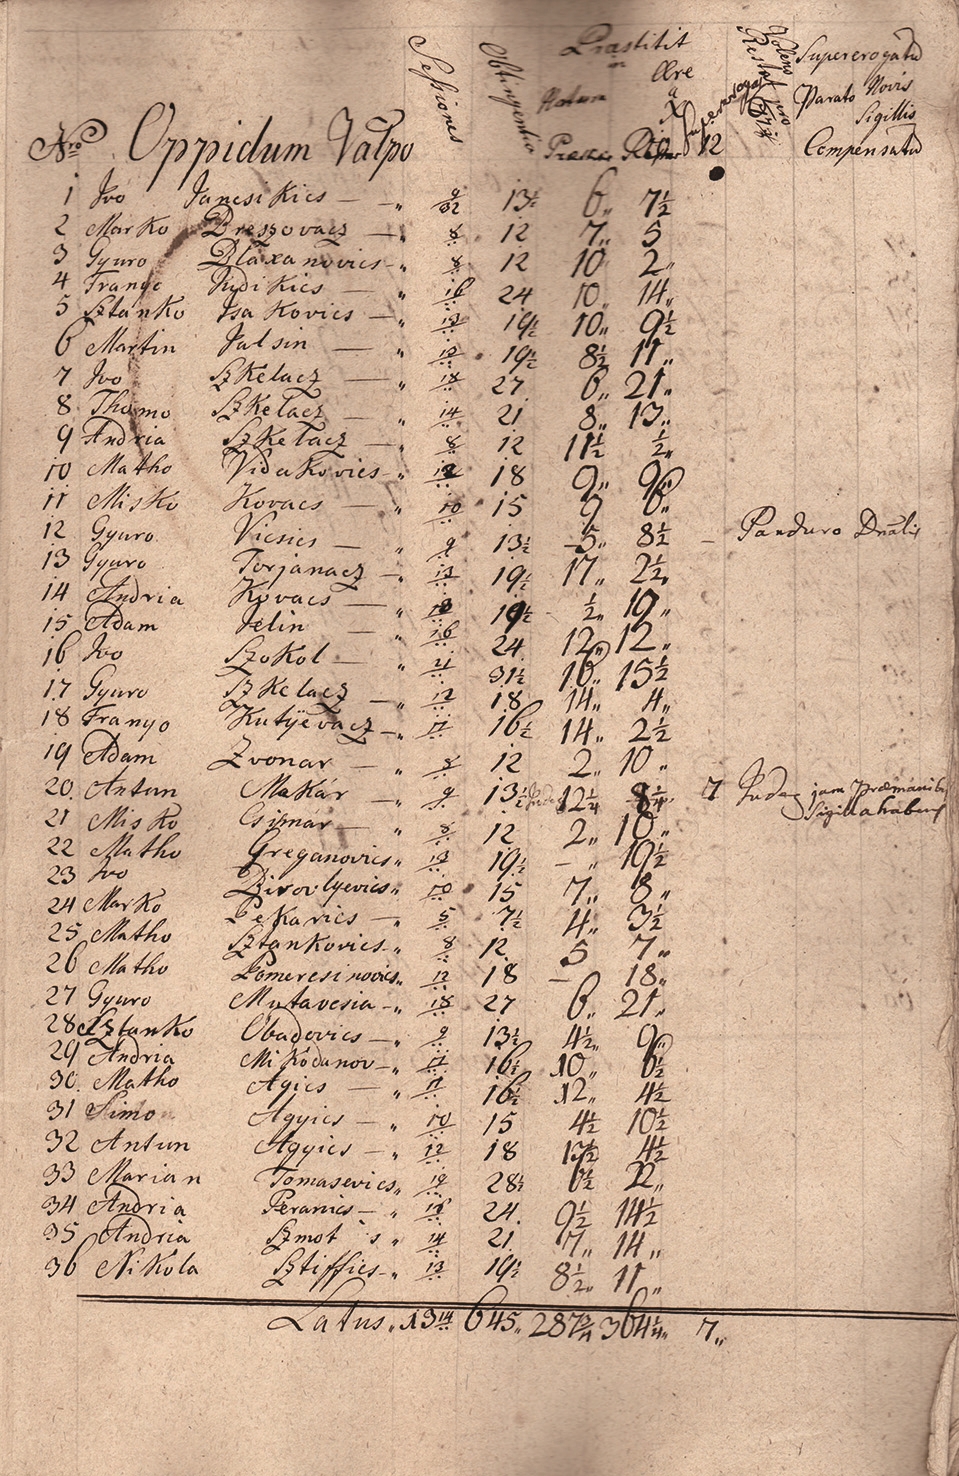 Sessiones
Obtingentia
Præstitit
in
Ære
a
Xr
Supererogatu
Parato Novis
Sigillis
Compensatu
Nro Oppidum Valpo 12
1 Ivo Jancsikics — „ 9/32 13½ 6„ 7½
2 Marko Breszovacz — „ 8 12 7„ 5
3 Gyuro Blaxanovics „ 8 12 10 2„
4 Franyo Judikics — „ 16 24 10„ 14„
5 Sztanko Isakovics — „ 13 19½ 10„ 9½
6 Martin Jalsin — „ 13 19½ 8½ 11„
7 Ivo Szkelacz — „ 18 27 6„ 21„
8 Thomo Szkelacz — „ 14 21 8„ 13„
9 Andria Szkelacz — „ 8 12 11½ ½„
10 Matho Vidakovics „ 12 18 9„ 9„
11 Misko Kovacs — „ 10 15 9 6„
12 Gyuro Vicsics — „ 9 13½ 5„ 8½ — Panduro Dnalis
13 Gyuro Torjanacz — „ 13 19½ 17„ 2½„
14 Andria Kovacs — „ 13 19½ ½„ 19„
15 Adam Jelin — „ 16 24 12„ 12„
16 Ivo Szokol — „ 21 31½ 16„ 15½
17 Gyuro Szkelacz — „ 12 18 14„ 4„
18 Franyo Kutyevacz — „ 11 16½ 14„ 2½
19 Adam Zvonar — „ 8 12 2„ 10„
20 Antun Makár — „ 9 13½ 12¼ 8¼„ 7 Judex jam præmanib
Sigilla habens
21 Misko Csismar — „ 8 12 2„ 10„
22 Matho Greganovics „ 13 19½ — „ 19½
23 Ivo Birovlyevics „ 10 15 7„ 8„
24 Marko Pekarics — „ 5 7½ 4„ 3½
25 Matho Sztankovics „ 8 12 5 7„
26 Matho Pomeresinovics „ 12 18 — 18„
27 Gyuro Mutavcsia „ 18 27 6„ 21„
28 Sztanko Obadovics — „ 9 13½ 4½„ 9„
29 Andria Mikodanov — „ 11 16½ 10„ 6½
30 Matho Agics — „ 11 16½ 12„ 4½
31 Simo Agyics — „ 10 15 4½ 10½
32 Antun Agyics — „ 12 18 13½ 4½
33 Marian Tomasevics „ 19 28½ 6½ 22„
34 Andria Peranics — „ 16 24 9½ 14½
35 Andria „ 14 21 7„ 14„
36 Nikola Sztiffics „ 13 19½ 8½„ 11„
Latus „ 13 14/32 645„ 287¾ 364¼„ 7„